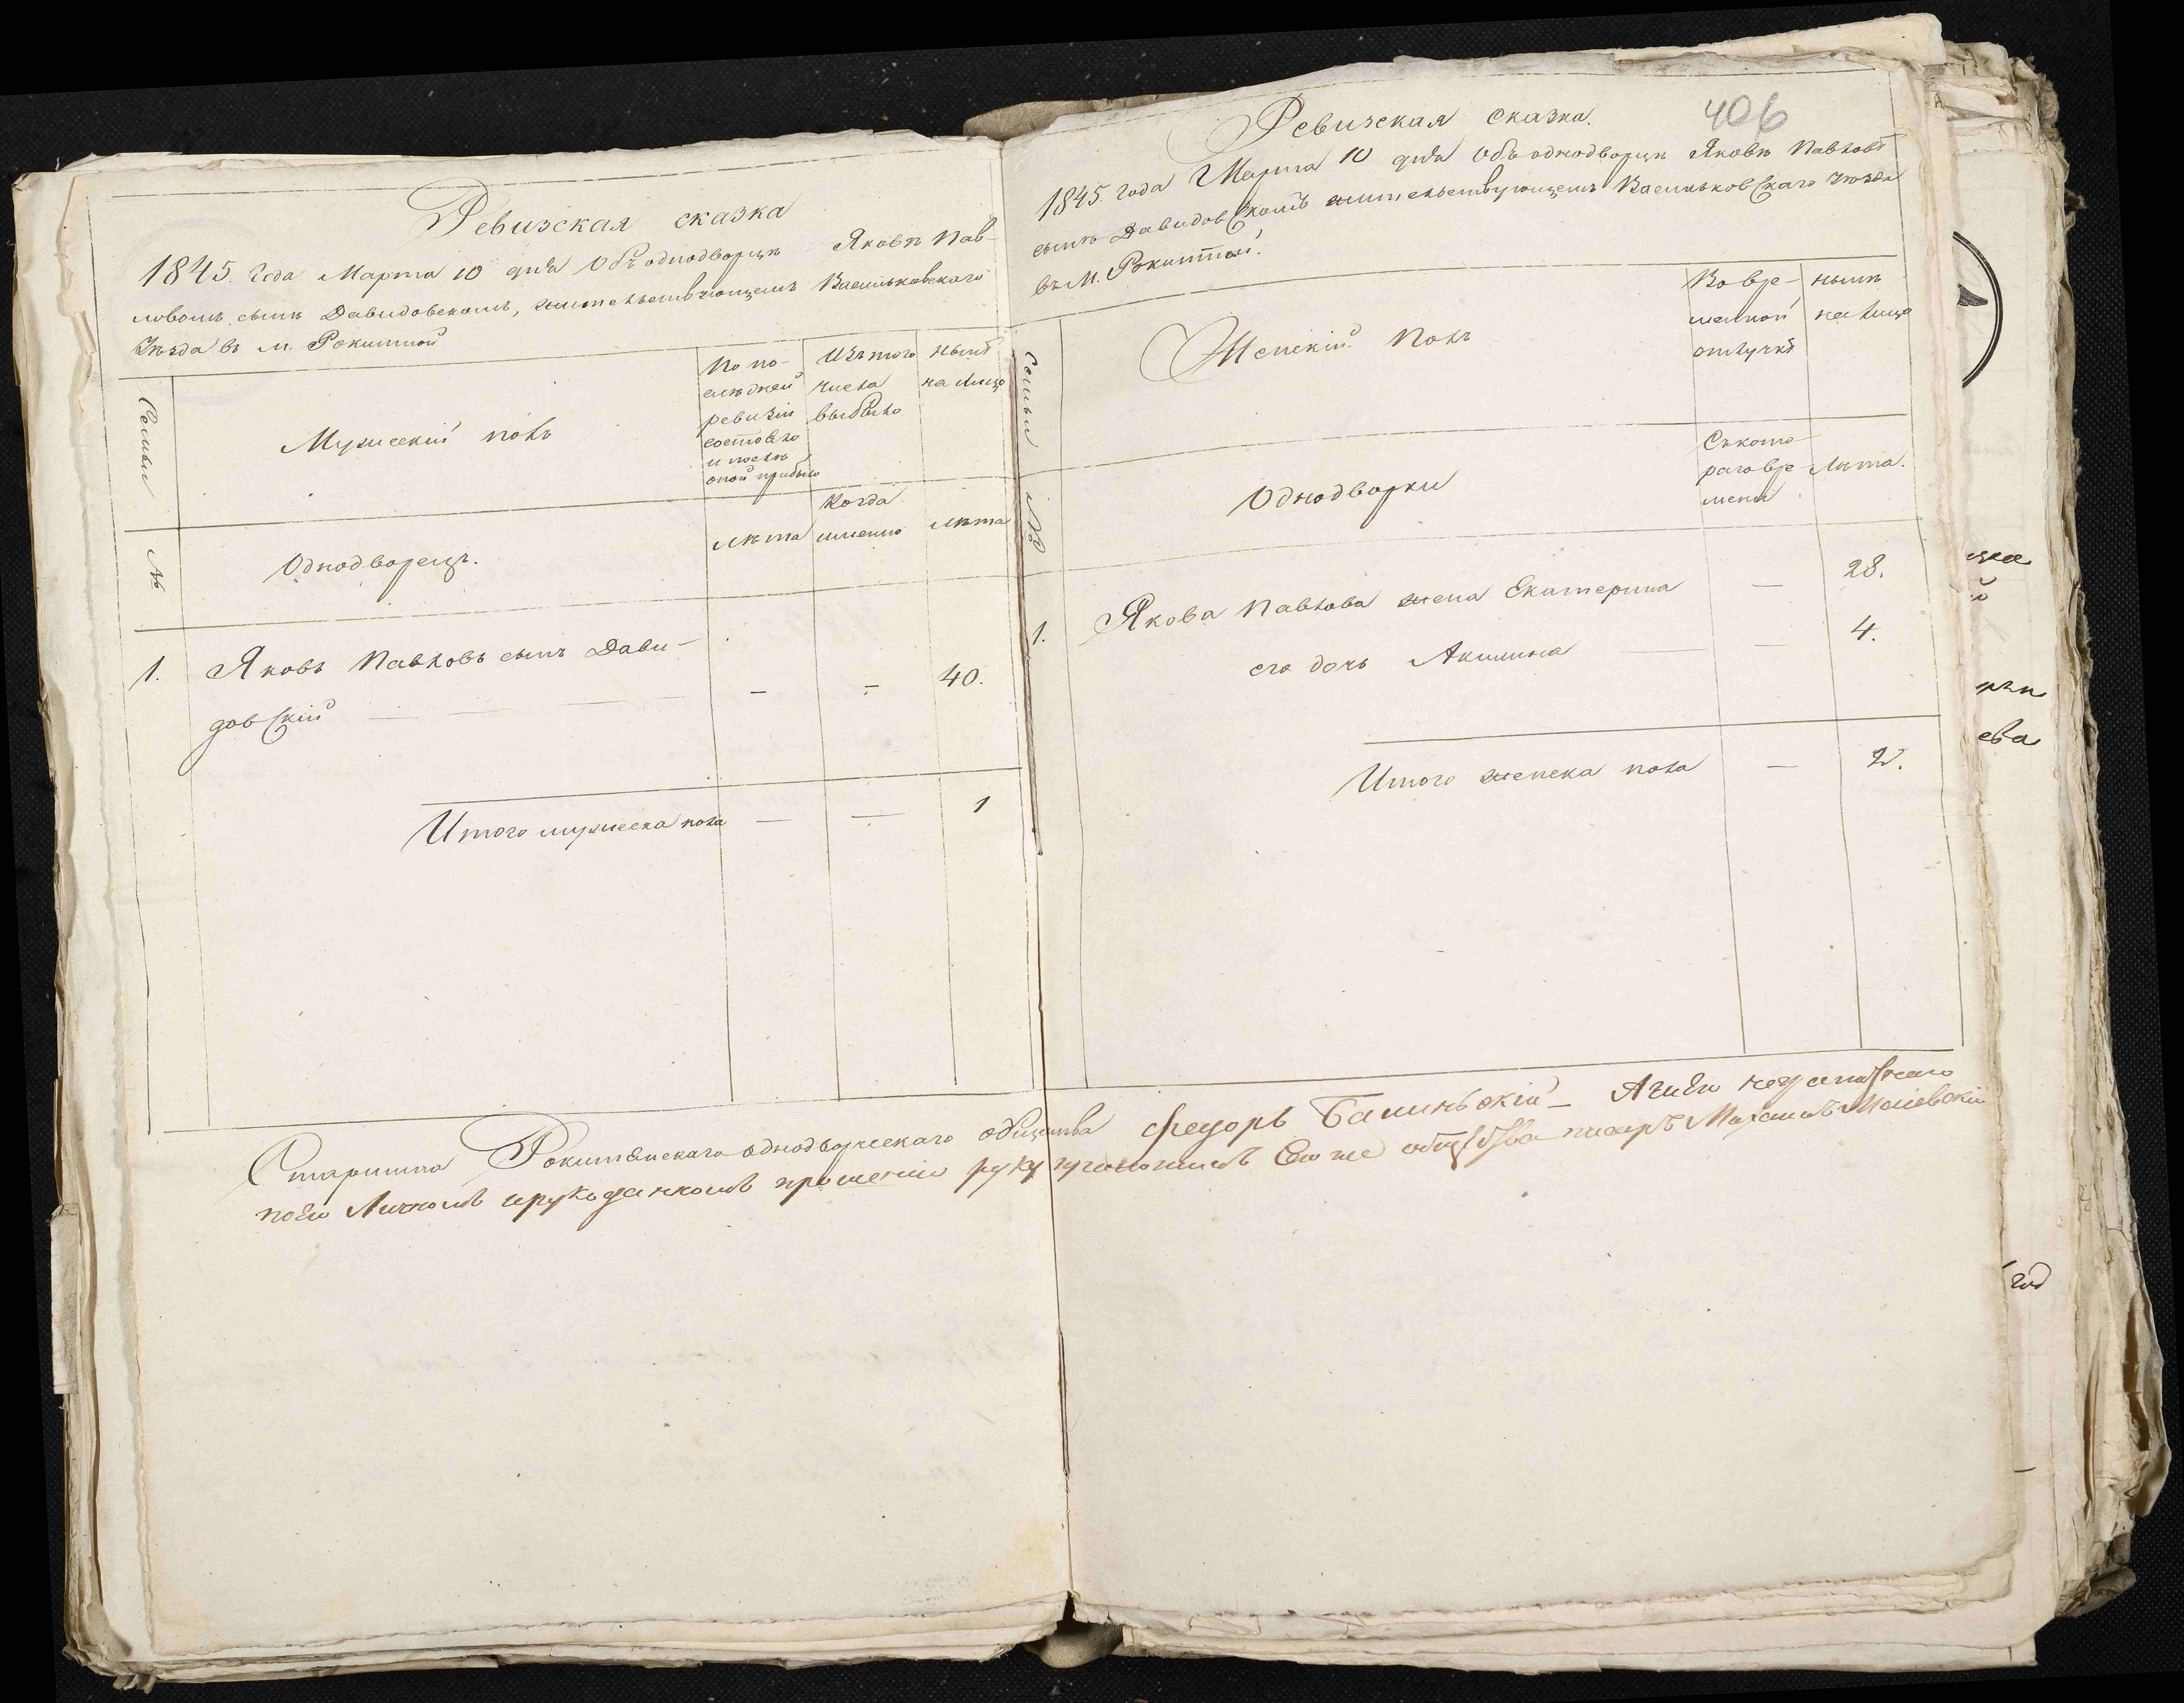 Ревизская сказка
1845. года Марта 10 дня Объ однодворцѣ Яковѣ Пав-
ловомъ сынѣ Давидовскомъ, жительствующемъ Васильковскаго
Уѣзда въ м. Рокитной
Семьи
№
Мужескій полъ
По по-
слѣдней
ревизіи
состояло
и послѣ
оной прибыло
Изъ того
числа
выбыло
Нынѣ
на лицо
Однодворецъ.
Лѣта
Когда
именно
Лѣта
1. Яковъ Павловъ сынъ Дави-
довскій — — 40.
Итого мужеска пола — — 1
406
Ревизская сказка.
1845. года Марта 10 дня Объ однодворцѣ Яковѣ Павловѣ
сынѣ Давидовскомъ жительствующемъ Васильковскаго уѣзда
въ М. Рокитной.
Семьи
№
Женскій полъ
Во вре-
менной
отлучкѣ
Нынѣ
на лицо
Однодворки
Съ кото-
раго вре-
мени
Лѣта.
1. Якова Павлова жена Екатерина — 28.
его дочь Акилина — 4.
Итого женска пола — 2.
Старшина Рокитянскаго однодворческаго общества Федоръ — А за его неграмотнаго
по его личному и рукоданному прошенію руку приложилъ Того же общества писарь